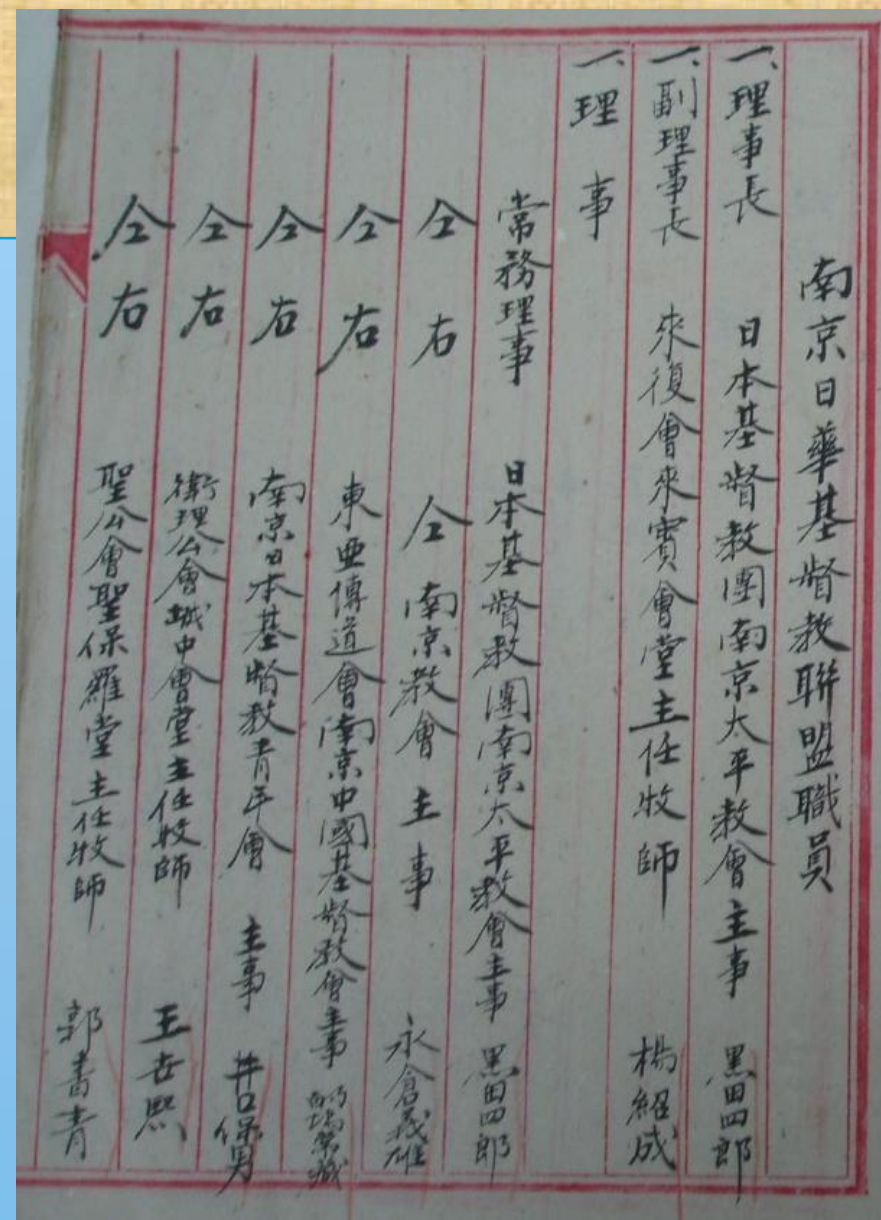 南京日華基督教聯盟職員
一、理事長 日本基督教團南京太平教會主事 黑田四郎
一、副理事長 來復會來賓會堂主任牧師 楊紹成
一、理事
常務理事 日本基督教團南京太平教會主事 黑田四郎
仝右 仝南京教會主事 永倉義雄
仝右 東亜傳道會南京中國基督教會主事
仝右 南京日本基督教青年會主事 井口保男
仝右 衛理公會城中會堂主任牧師 王世熙
仝右 聖公會聖保羅堂主任牧師 郭書青